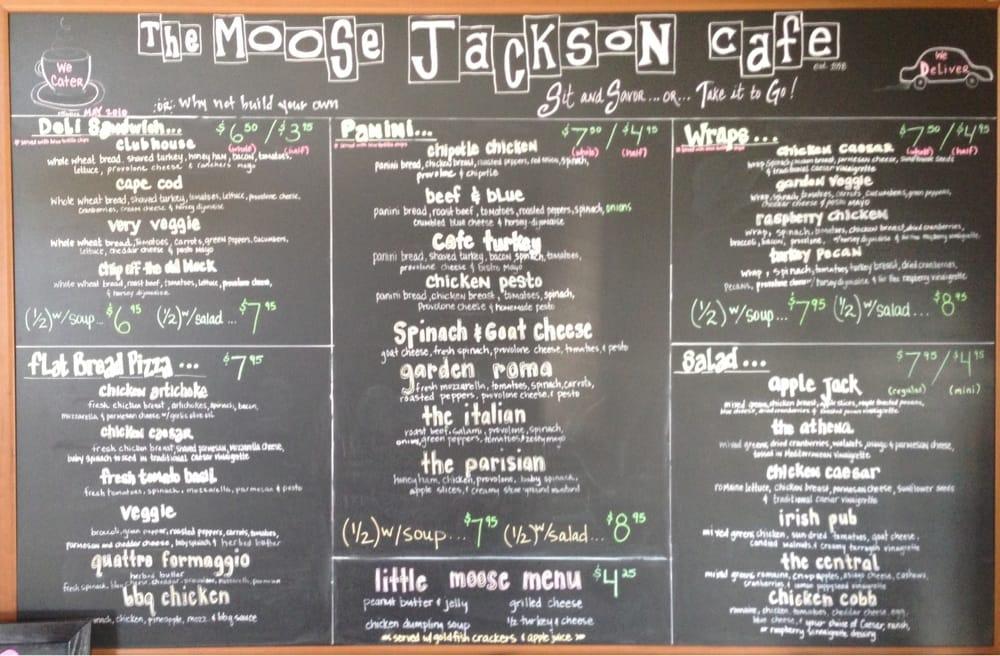 The Moose Jackson Cafe
We Cater
We Deliver
MAY 2010
:OR: Why not build your own
Sit and Savor... or... Take it to Go!
Deli Sandwich... $6.50 / $3.95
(whole) (half)
clubhouse
whole wheat bread, shaved turkey, honey ham, bacon, tomatoes,
lettuce, provolone cheese & mayo
cape cod
whole wheat bread, shaved turkey, tomatoes, lettuce, provolone cheese,
cranberries, cream cheese & horsey dijonaise
very veggie
whole wheat bread, tomatoes, carrots, green peppers, cucumbers,
lettuce, cheddar cheese & pesto mayo
chip off the old block
whole wheat bread, roast beef, tomatoes, lettuce, provolone cheese,
& horsey dijonaise
(1/2) w/soup... $6.95 (1/2) w/salad... $7.95
Flat Bread Pizza... $7.95
chicken artichoke
fresh chicken breast, artichokes, spinach, bacon,
mozzarella & parmesan cheese w/garlic olive oil
chicken caesar
fresh chicken breast, shaved parmesan, mozzarella cheese,
baby spinach tossed in traditional caesar vinaigrette
fresh tomato basil
fresh tomatoes, spinach, mozzarella, parmesan & pesto
veggie
broccoli, green pepper, roasted peppers, carrots, tomatoes,
parmesan and cheddar cheese, baby spinach & herbed butter
quattro formaggio
herbed butter
fresh spinach, cheese, cheddar, provolone, mozzarella, parmesan
bbq chicken
chicken, pineapple, mozz & bbq sauce
Panini... $7.50 / $4.95
(whole) (half)
chipotle chicken
panini bread, chicken breast, roasted peppers, red onion, spinach,
provolone & chipotle
beef & blue
panini bread, roast beef, tomatoes, roasted peppers, spinach, onions
crumbled blue cheese & horsey-dijonaise
cafe turkey
panini bread, shaved turkey, bacon, spinach, tomatoes,
provolone cheese & bistro mayo
chicken pesto
panini bread, chicken breast, tomatoes, spinach,
provolone cheese & homemade pesto
Spinach & Goat cheese
goat cheese, fresh spinach, provolone cheese, tomatoes, & pesto
garden roma
fresh mozzarella, tomatoes, spinach, carrots,
roasted peppers, provolone, & pesto
the italian
roast beef, salami, provolone, spinach,
onions, green peppers, tomatoes & zesty mayo
the parisian
honey ham, chicken, provolone, baby spinach,
apple slices, & creamy stone ground mustard
(1/2) w/soup... $7.95 (1/2) w/salad... $8.95
little moose menu $4.25
peanut butter & jelly grilled cheese
chicken dumpling soup 1/2 turkey & cheese
served w/ goldfish crackers & apple juice
Wraps... $7.50 / $4.95
(whole) (half)
chicken caesar
wrap, spinach, chicken breast, parmesan cheese, sunflower seeds
& traditional caesar vinaigrette
garden veggie
wrap, spinach, tomatoes, carrots, cucumbers, green peppers,
cheddar cheese & pesto mayo
raspberry chicken
wrap, spinach, tomatoes, chicken breast, dried cranberries,
broccoli, bacon, provolone, horsey dijonaise & fat free raspberry vinaigrette
turkey pecan
wrap, spinach, tomatoes, turkey breast, dried cranberries,
pecans, provolone cheese, horsey dijonaise & fat free raspberry vinaigrette
(1/2) w/soup... $7.95 (1/2) w/salad... $8.95
Salad... $7.95 / $4.95
(regular) (mini)
apple jack
mixed greens, chicken breast, apple slices, roasted pecans,
blue cheese, dried cranberries & vinaigrette
the athena
mixed greens, dried cranberries, walnuts, asiago & parmesan cheese,
tossed in Mediterranean vinaigrette
chicken caesar
romaine lettuce, chicken breast, parmesan cheese, sunflower seeds
& traditional caesar vinaigrette
irish pub
mixed greens, chicken, sun dried tomatoes, goat cheese,
candied walnuts & creamy tarragon vinaigrette
the central
mixed greens, romaine, crisp apples, asiago cheese, cashews,
cranberries & lemon poppyseed vinaigrette
chicken cobb
romaine, chicken, tomatoes, cheddar cheese, egg,
blue cheese, & your choice of Caesar, ranch,
or raspberry vinaigrette dressing